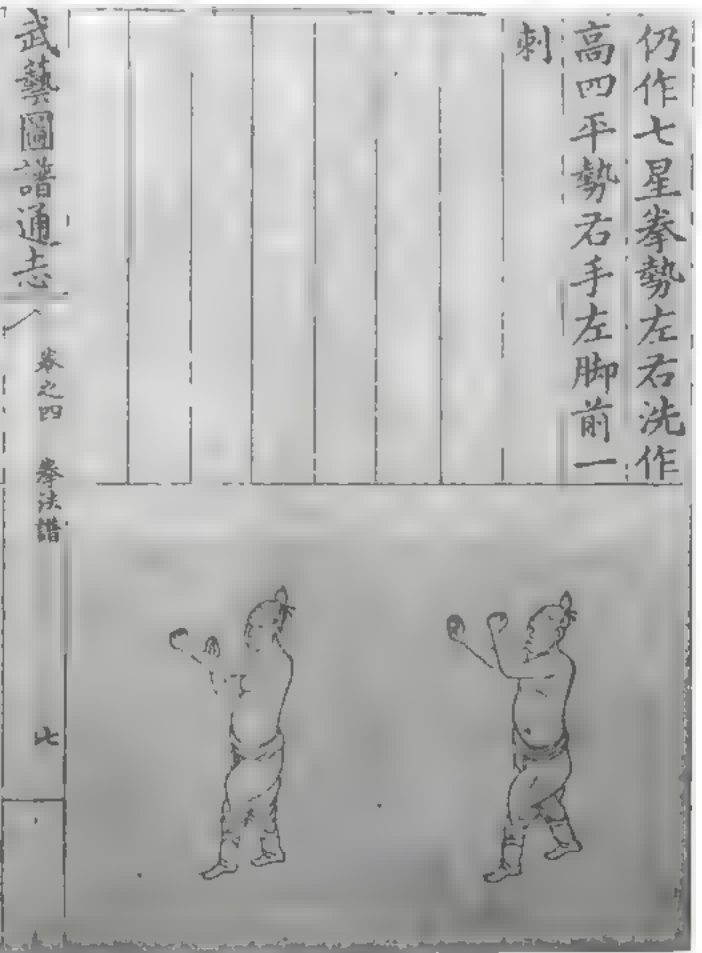 仍作七星拳勢左右洗作
高四平勢右手左脚前一
刺
武藝圖譜通志
卷之四 拳法譜
七